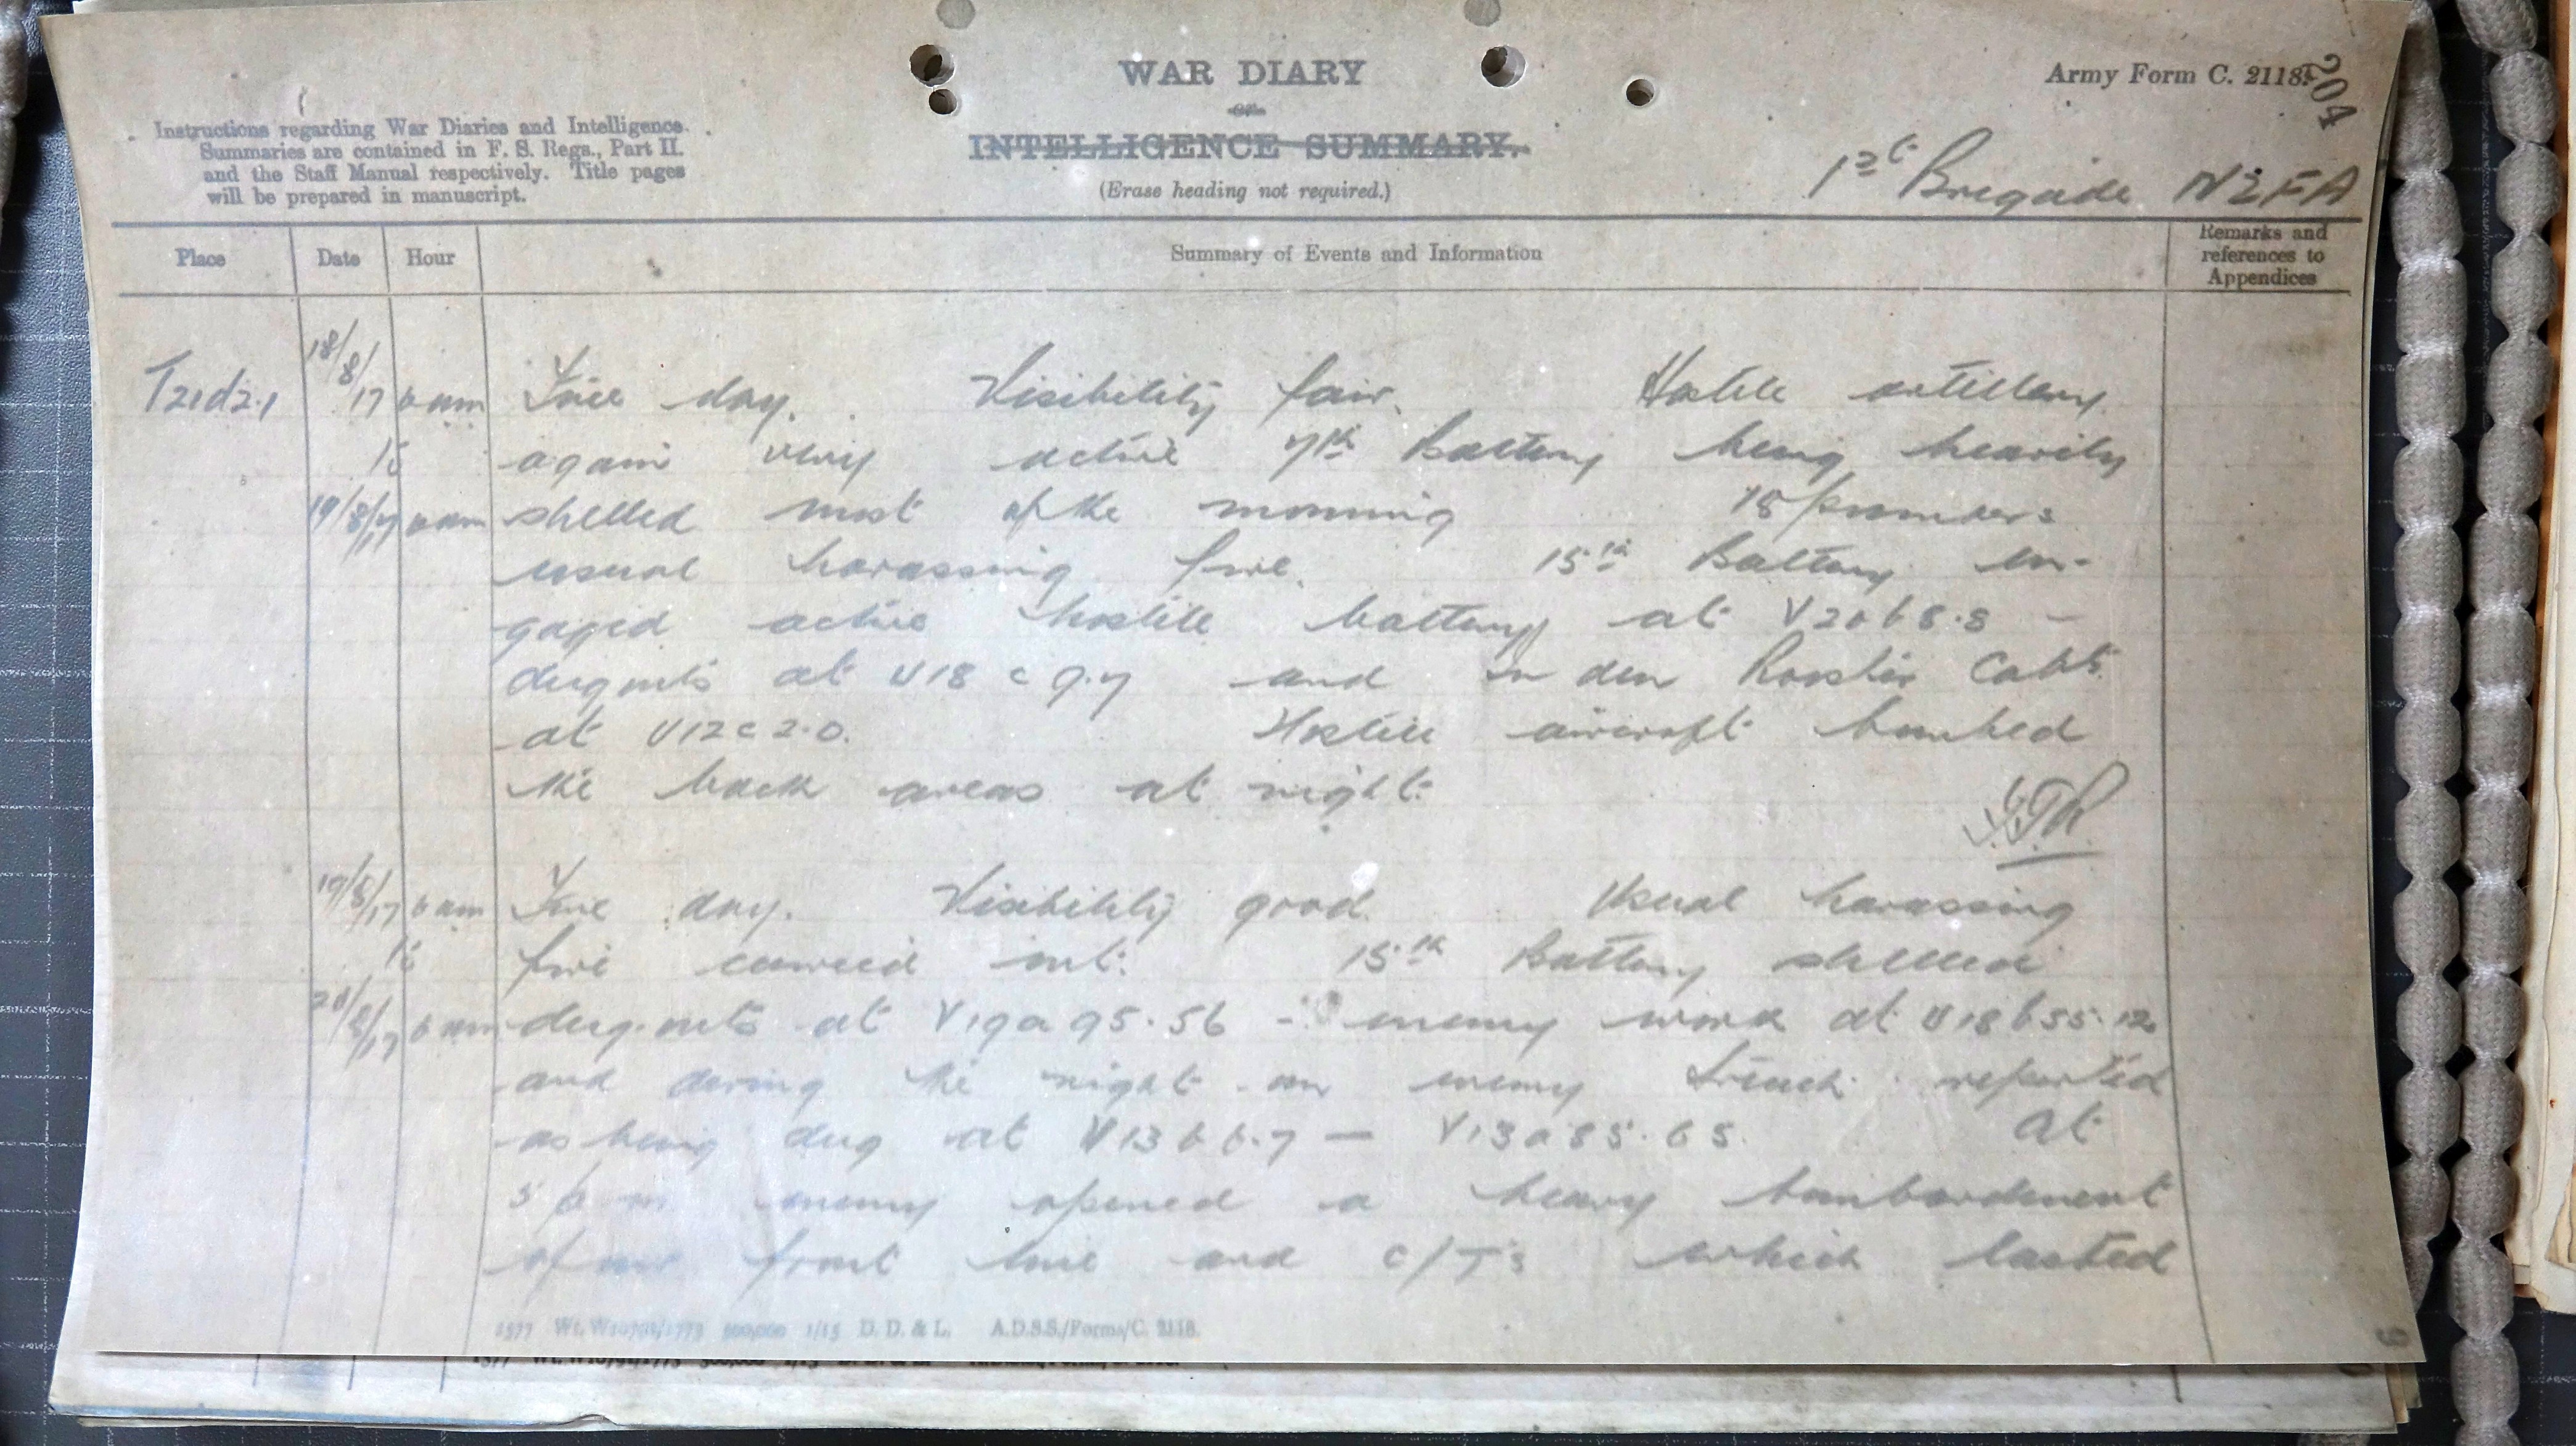 WAR DIARY
or
INTELLIGENCE SUMMARY.
(Erase heading not required.)
Army Form C. 2118.
204
Instructions regarding War Diaries and Intelligence
Summaries are contained in F. S. Regs., Part II.
and the Staff Manual respectively. Title pages
will be prepared in manuscript.
1st Brigade NZFA
Place Date Hour Summary of Events and Information Remarks and references to Appendices
T21d2.1 18/8/17 6 am Fine day. Visibility fair. Hostile artillery
to again very active 7th Battery being heavily
19/8/17 6 am shelled most of the morning 18 pounders
usual harassing fire. 15th Battery en-
gaged active hostile battery at V20b8.8 -
dugouts at U18 c 9.7 and In den Rooster Cabt.
at U12c2.0. Hostile aircraft bombed
the back areas at night.
19/8/17 6 am Fine day. Visibility good. Usual harassing
to fire carried out. 15th Battery shelled
20/8/17 6 am dug-outs at V19a95.56 - enemy work at U18b55.12
and during the night an enemy trench reported
as being dug at V13b6.7 — V13a85.65. At
5 pm enemy opened a heavy bombardment
of our front line and C/T's which lasted
1577 Wt. W10791/1773 500,000 1/15 D. D. & L. A.D.S.S./Forms/C. 2118.